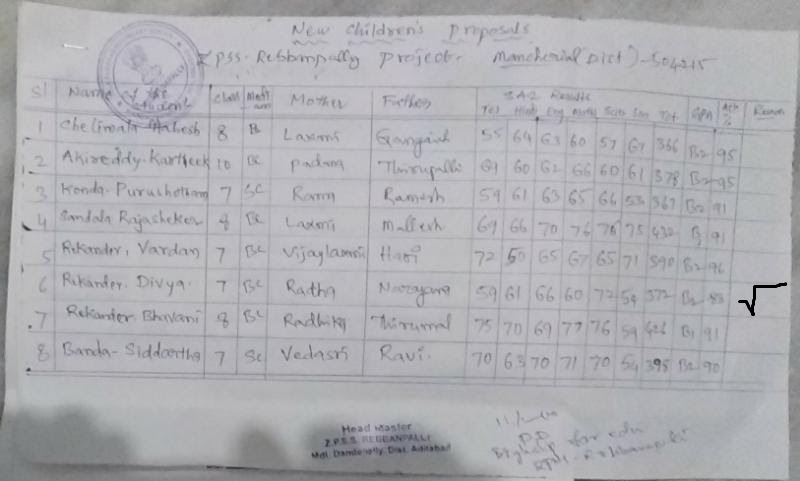 New Children's Proposals
ZPSS. Rebbanpally Project. Mancherial Dist)-504215
Sl Name of the Student Class Mother Father SA2 Results Tel Hindi Eng Maths Scin Son Tot GPA %
1 Chelimala Mahesh 8 Bc Laxmi Gangaiah 55 64 63 60 57 67 366 B2 95
2 Akireddy. Kartheek 10 Bc Padma Thirupathi 69 60 62 66 60 61 378 B2 95
3 Konda. Purushotham 7 Sc Rama Ramesh 59 61 63 65 66 53 367 B2 91
4 Sandala Rajasheker 8 Bc Laxmi Mallesh 69 66 70 76 76 75 432 B1 91
5 Rekander, Vardan 7 BC Vijaylaxmi Hari 72 50 65 67 65 71 390 B2 96
6 Rekander. Divya. 7 BC Radha Narayana 59 61 66 60 72 54 372 B2 88 √
7 Rekander. Bhavani 8 BC Radhika Thirumal 75 70 69 77 76 59 426 B1 91
8 Banda- Siddartha 7 Sc Vedasri Ravi. 70 63 70 71 70 54 395 B2 90
Head Master
Z.P.S.S. REBBANPALLI
Mdl. Dandepally, Dist. Adilabad
P.D
Bighelp for edu